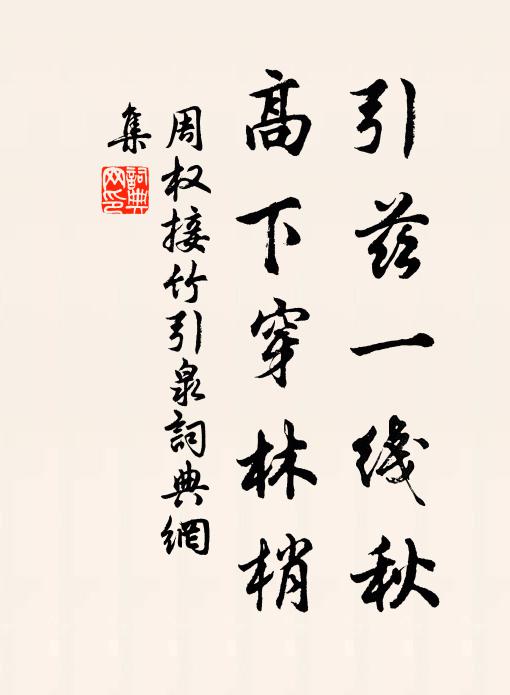 引兹一线秋
高下穿林梢
周权接竹引泉詞典網
集
詞典网印